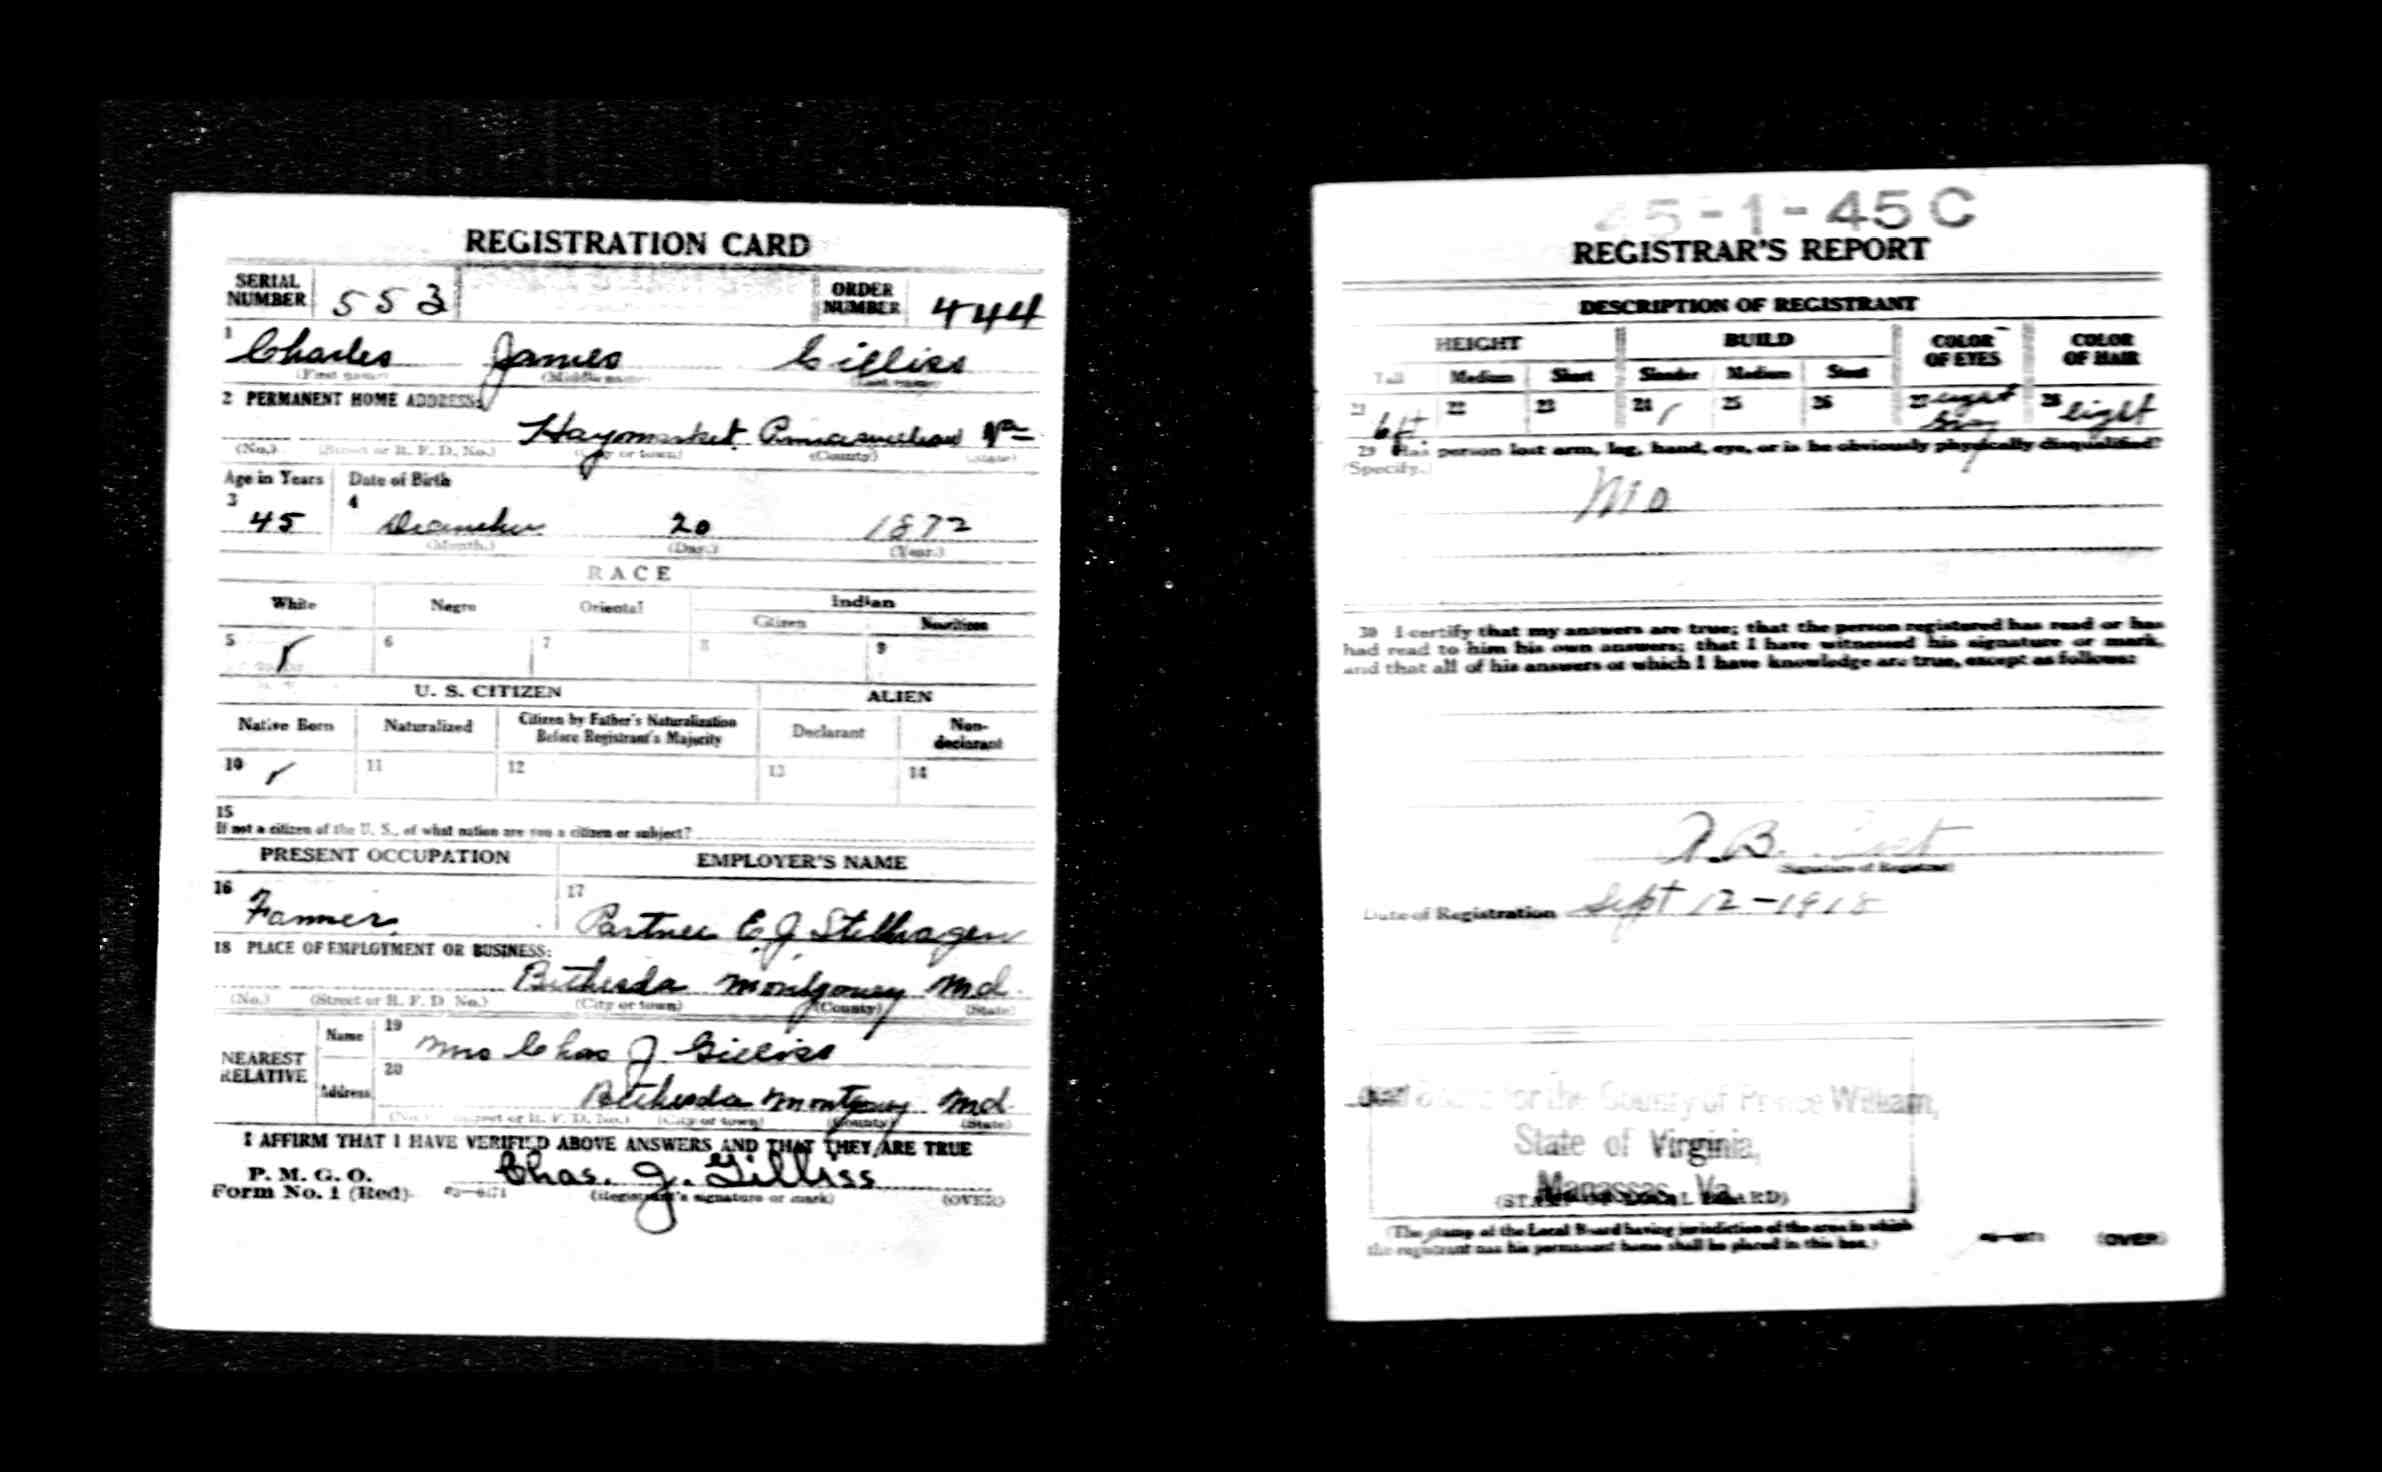 REGISTRATION CARD
SERIAL NUMBER 553 ORDER NUMBER 444
1 Charles James Gilliss
(First name) (Middle name) (Last name)
2 PERMANENT HOME ADDRESS:
Haymarket Va
(No.) (Street or R. F. D. No.) (City or town) (County) (State)
Age in Years Date of Birth
3 4
45 December 20 1872
(Month.) (Day.) (Year.)
RACE
White Negro Oriental Indian
Citizen Noncitizen
5 6 7 8 9
U. S. CITIZEN ALIEN
Native Born Naturalized Citizen by Father's Naturalization Before Registrant's Majority Declarant Non-declarant
10 11 12 13 14
15
If not a citizen of the U. S., of what nation are you a citizen or subject?
PRESENT OCCUPATION EMPLOYER'S NAME
16 Farmer 17 Partner E. J. Stellhagen
18 PLACE OF EMPLOYMENT OR BUSINESS:
Bethesda Montgomery Md.
(No.) (Street or R. F. D. No.) (City or town) (County) (State)
NEAREST RELATIVE Name 19 Mrs Chas J. Gilliss
Address 20 Bethesda Montgomery Md.
(No.) (Street or R. F. D. No.) (City or town) (County) (State)
I AFFIRM THAT I HAVE VERIFIED ABOVE ANSWERS AND THAT THEY ARE TRUE
P. M. G. O.
Form No. 1 (Red) Chas. J. Gilliss
(Registrant's signature or mark) (OVER)
45-1-45 C
REGISTRAR'S REPORT
DESCRIPTION OF REGISTRANT
HEIGHT BUILD COLOR OF EYES COLOR OF HAIR
Tall Medium Short Slender Medium Stout
21 6 ft 22 23 24 25 26 27 light gray 28 light
29 Has person lost arm, leg, hand, eye, or is he obviously physically disqualified?
(Specify.)
No
30 I certify that my answers are true; that the person registered has read or has
had read to him his own answers; that I have witnessed his signature or mark,
and that all of his answers of which I have knowledge are true, except as follows:
(Signature of Registrar)
Date of Registration Sept 12-1918
Local Board for the County of Prince William,
State of Virginia,
Manassas, Va.
(STAMP OF LOCAL BOARD)
(The stamp of the Local Board having jurisdiction of the area in which
the registrant has his permanent home shall be placed in this box.)
(OVER)